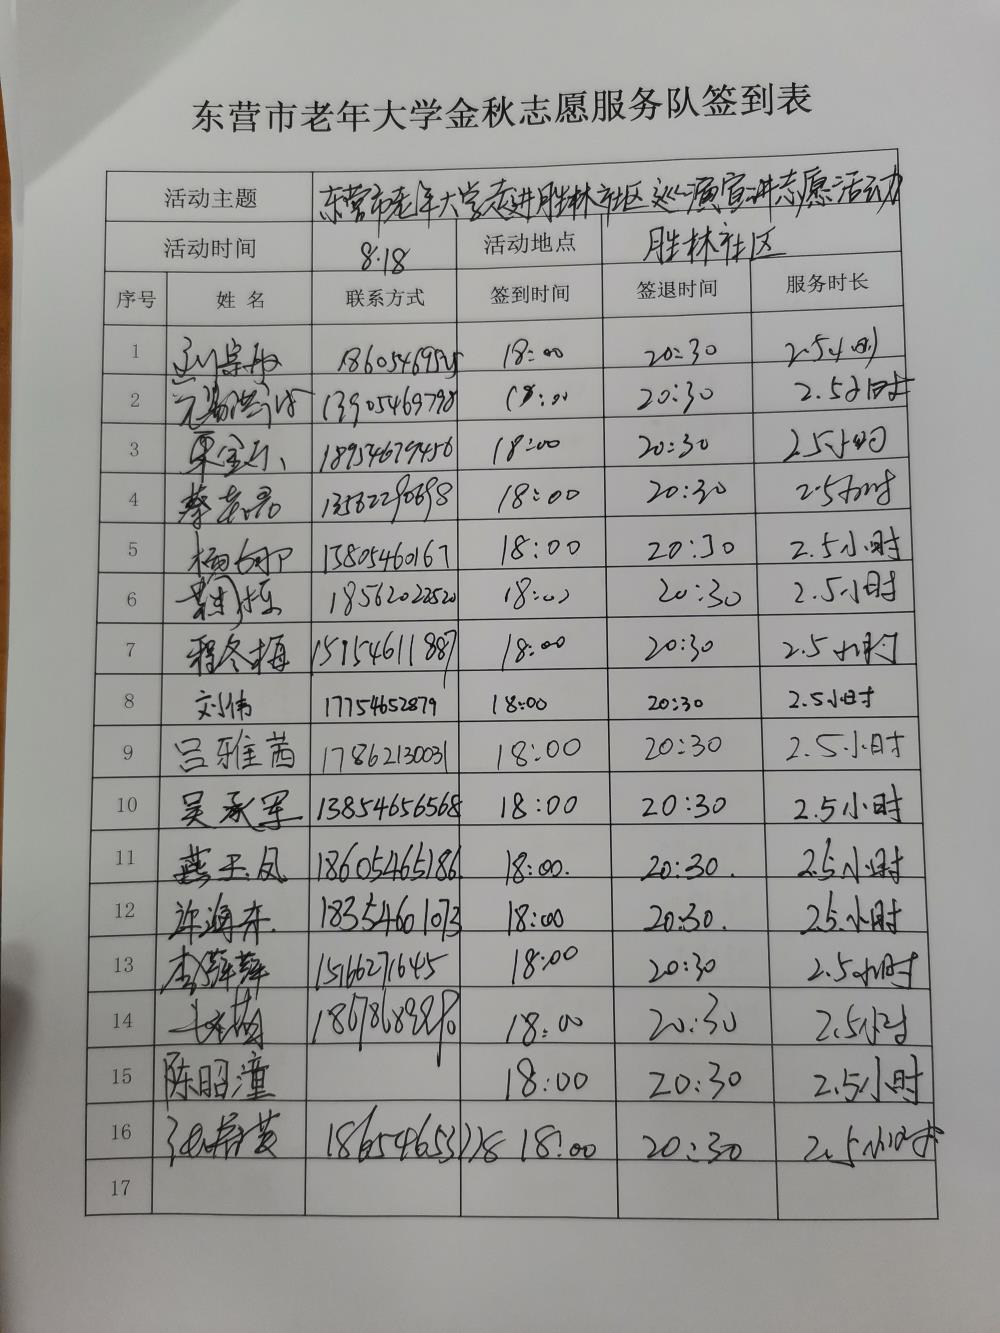 东营市老年大学金秋志愿服务队签到表
活动主题 东营市老年大学走进胜林社区巡演宣讲志愿活动
活动时间 8.18 活动地点 胜林社区
序号 姓名 联系方式 签到时间 签退时间 服务时长
1 18:00 20:30 2.5小时
2 13905469798 18:00 20:30 2.5小时
3 18954679456 18:00 20:30 2.5小时
4 18:00 20:30 2.5小时
5 13805460167 18:00 20:30 2.5小时
6 18562022520 18:00 20:30 2.5小时
7 程冬梅 15154611887 18:00 20:30 2.5小时
8 刘伟 17754652879 18:00 20:30 2.5小时
9 吕雅茜 17862130031 18:00 20:30 2.5小时
10 吴承军 13854656568 18:00 20:30 2.5小时
11 燕玉凤 18605465186 18:00. 20:30. 2.5小时
12 许海东. 18354601073 18:00 20:30. 2.5小时
13 李萍萍 15166271645 18:00 20:30 2.5小时
14 18:00 20:30 2.5小时
15 陈昭潼 18:00 20:30 2.5小时
16 18:00 20:30 2.5小时
17